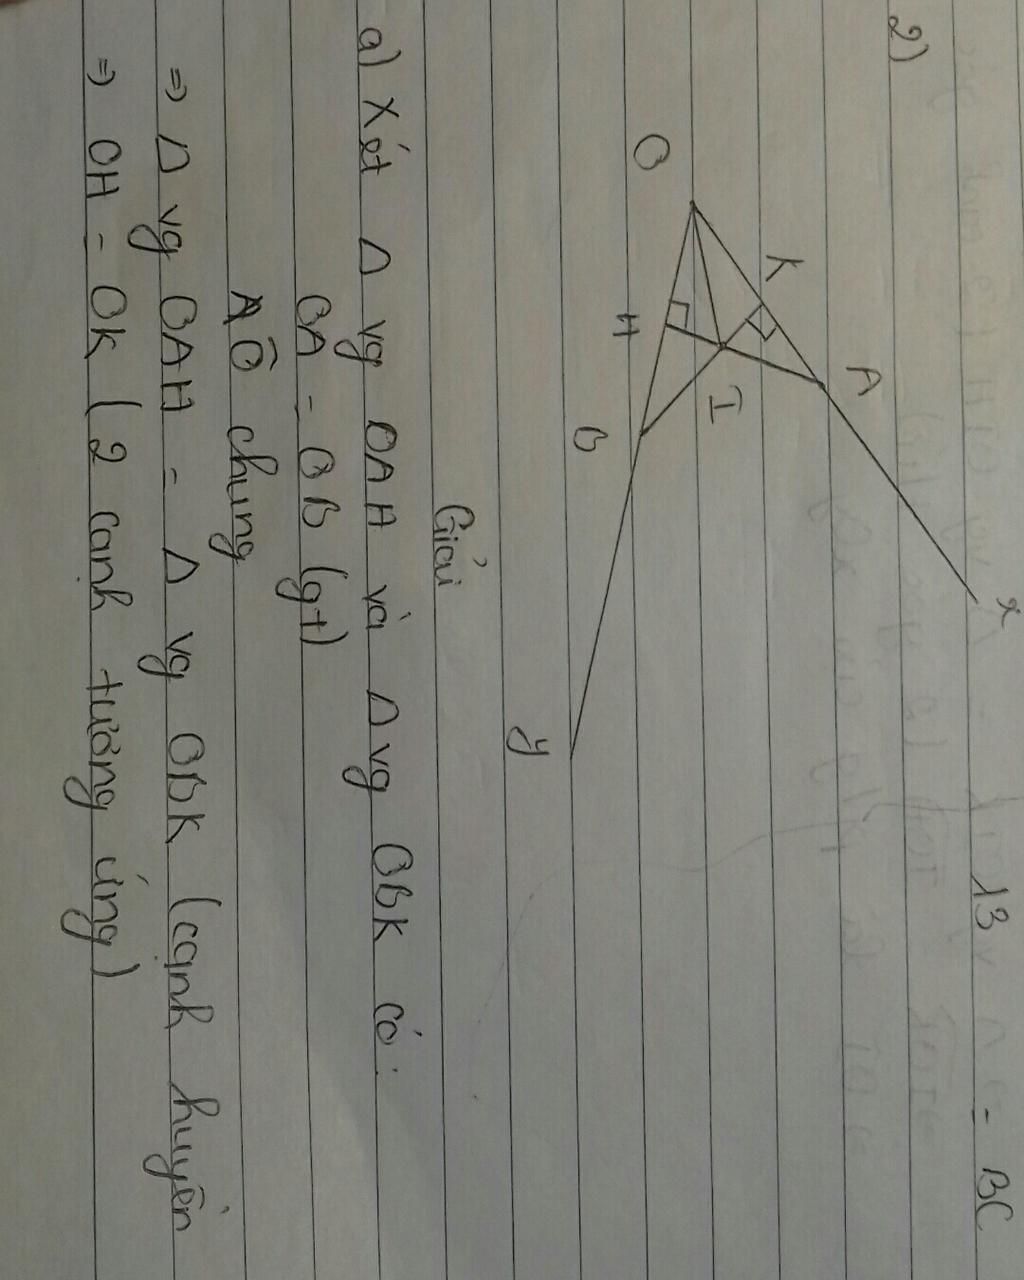 13 = BC
2)
x
A
K
I
O
H
B
y
Giải
a) Xét Δ vg OAH và Δ vg OBK có:
OA = OB (gt)
AÔ chung
⇒ Δ vg OAH = Δ vg OBK (cạnh huyền
⇒ OH = OK (2 cạnh tương ứng)